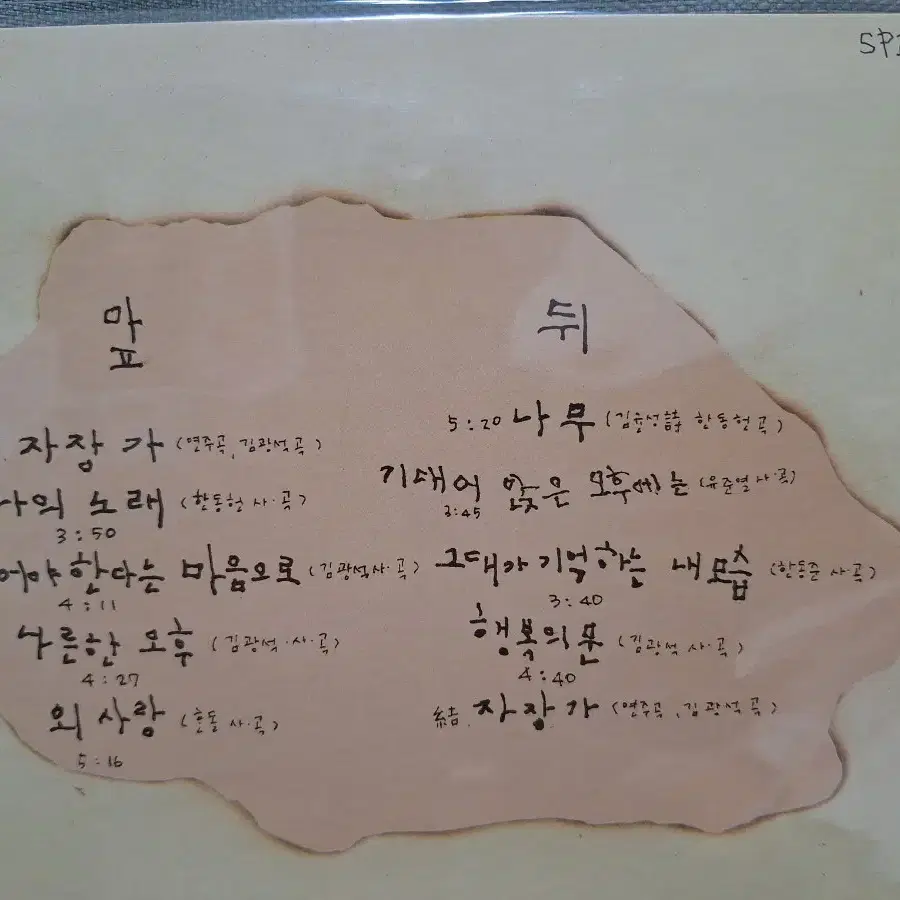 SP
앞
자장가 (연주곡, 김광석 곡)
나의 노래 (한동헌 사·곡)
3:50
어야 한다는 마음으로 (김광석 사·곡)
4:11
나른한 오후 (김광석·사·곡)
4:27
외사랑 (한돌 사·곡)
5:16
뒤
5:20 나무 (김윤성詩 한동헌 곡)
기대어 앉은 오후에는 (유준열 사·곡)
3:45
그대가 기억하는 내 모습 (한동준 사·곡)
3:40
행복의 문 (김광석 사·곡)
4:40
結. 자장가 (연주곡, 김광석 곡)